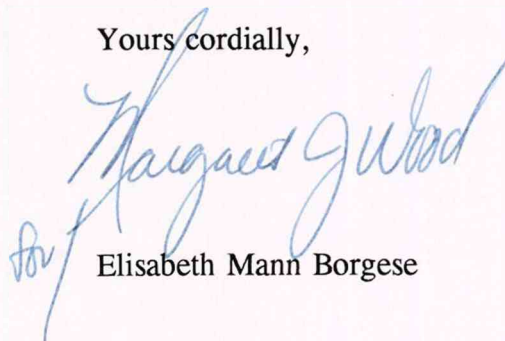 Yours cordially,
Margaret J Wood
for
Elisabeth Mann Borgese